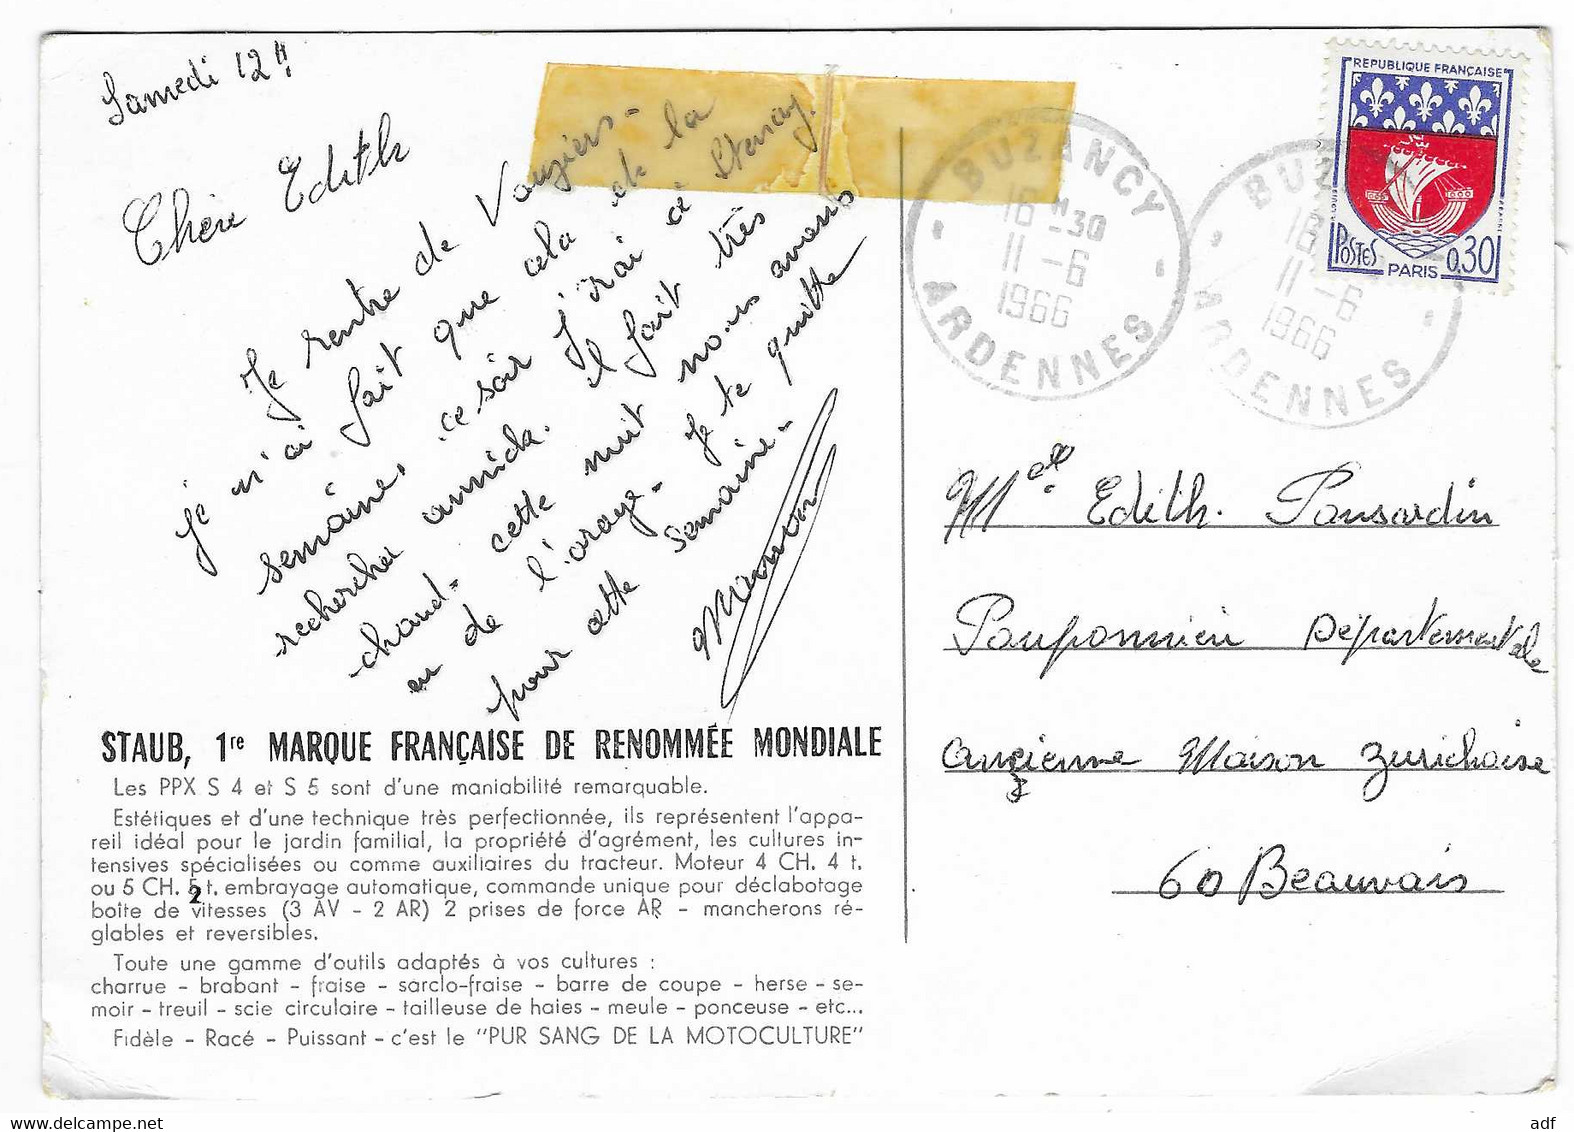 Samedi 12H.
Chère Edith
Je rentre de Vouziers-
je n'ai fait que cela de la
semaine, ce soir j'irai à Stenay.
rechercher annick. il fait très
chaud- cette nuit nous avons
eu de l'orage- Je te quitte
pour cette semaine-
Maman
STAUB, 1re MARQUE FRANÇAISE DE RENOMMÉE MONDIALE
Les PPX S 4 et S 5 sont d'une maniabilité remarquable.
Estétiques et d'une technique très perfectionnée, ils représentent l'appa-
reil idéal pour le jardin familial, la propriété d'agrément, les cultures in-
tensives spécialisées ou comme auxiliaires du tracteur. Moteur 4 CH. 4 t.
ou 5 CH. 2 t. embrayage automatique, commande unique pour déclabotage
boîte de vitesses (3 AV - 2 AR) 2 prises de force AR - mancherons ré-
glables et reversibles.
Toute une gamme d'outils adaptés à vos cultures :
charrue - brabant - fraise - sarclo-fraise - barre de coupe - herse - se-
moir - treuil - scie circulaire - tailleuse de haies - meule - ponceuse - etc...
Fidèle - Racé - Puissant - c'est le "PUR SANG DE LA MOTOCULTURE"
BUZANCY
16 H -30
11 -6
1966
ARDENNES
BUZ
16
11 -6
1966
ARDENNES
REPUBLIQUE FRANÇAISE
POSTES PARIS 0,30
Melle Edith. Ponsardin
Pouponnière Départementale
Ancienne Maison Zurichoise
60 Beauvais
delcampe.net
adf